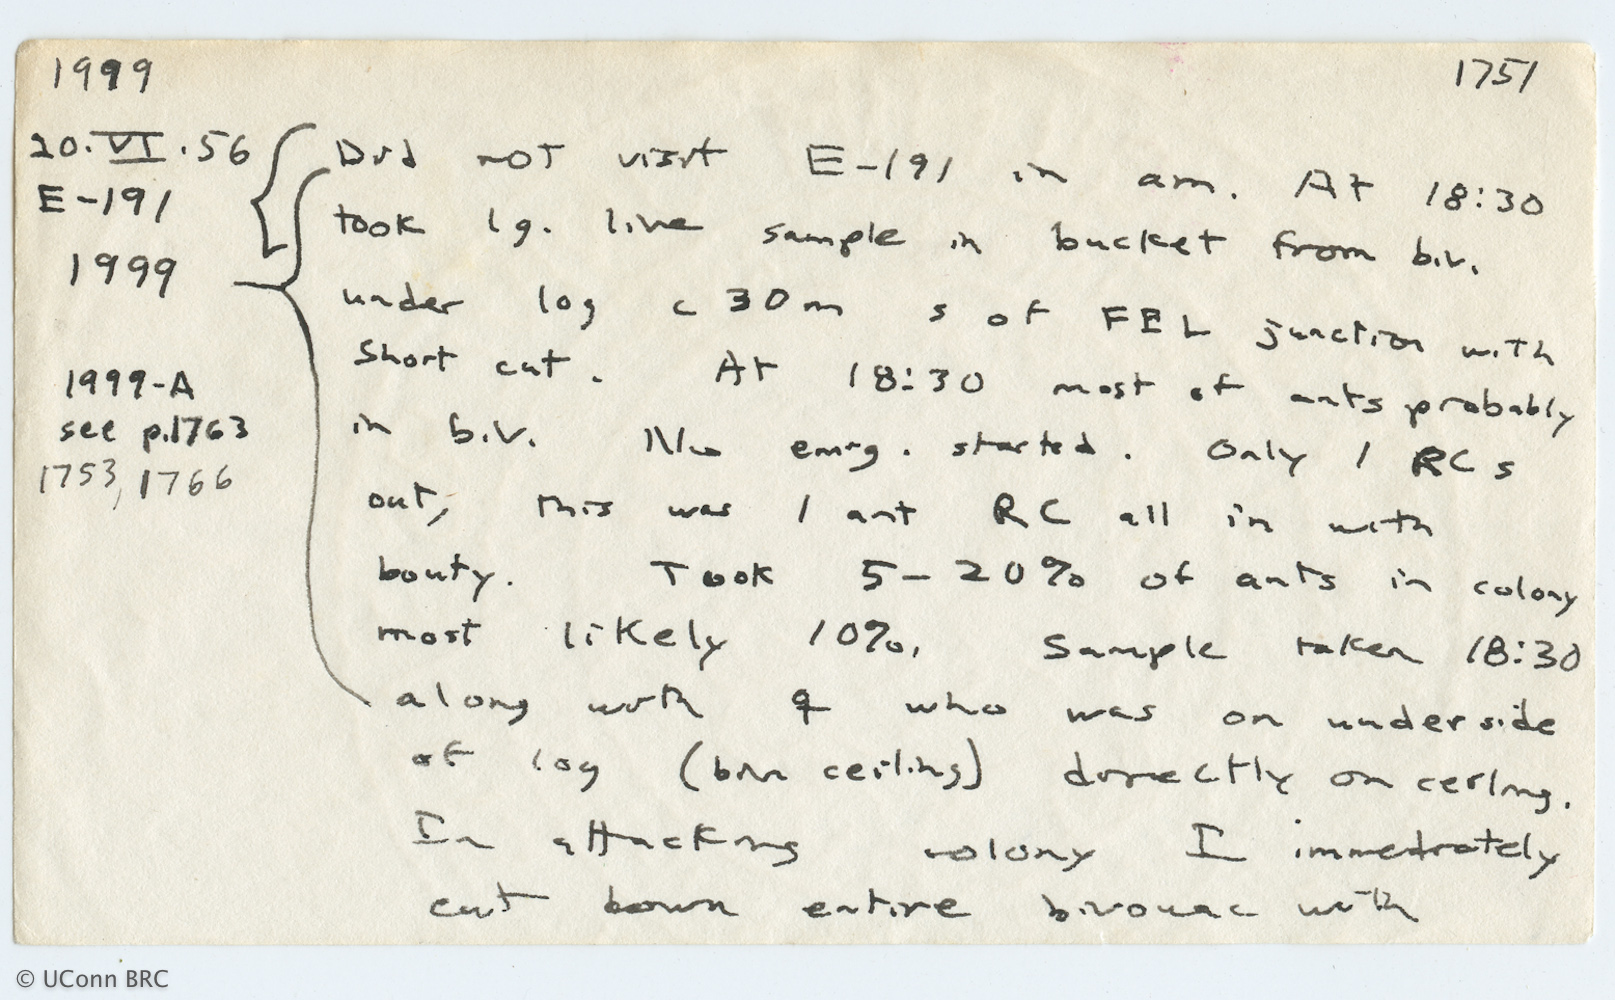 1999
1751
20.VI.56
E-191
1999
1999-A
see p.1763
1753, 1766
Did not visit E-191 in am. At 18:30
took lg. live sample in bucket from biv.
under log c 30m s of FEL junction with
Short cut. At 18:30 most of ants probably
in biv. No emrg. started. Only 1 RC s
out, this was 1 ant RC all in with
bouty. Took 5-20% of ants in colony
most likely 10%. Sample taken 18:30
along with who was on underside
of log (bivv ceiling) directly on ceiling.
In attacking colony I immediately
cut down entire bivouac with
© UConn BRC